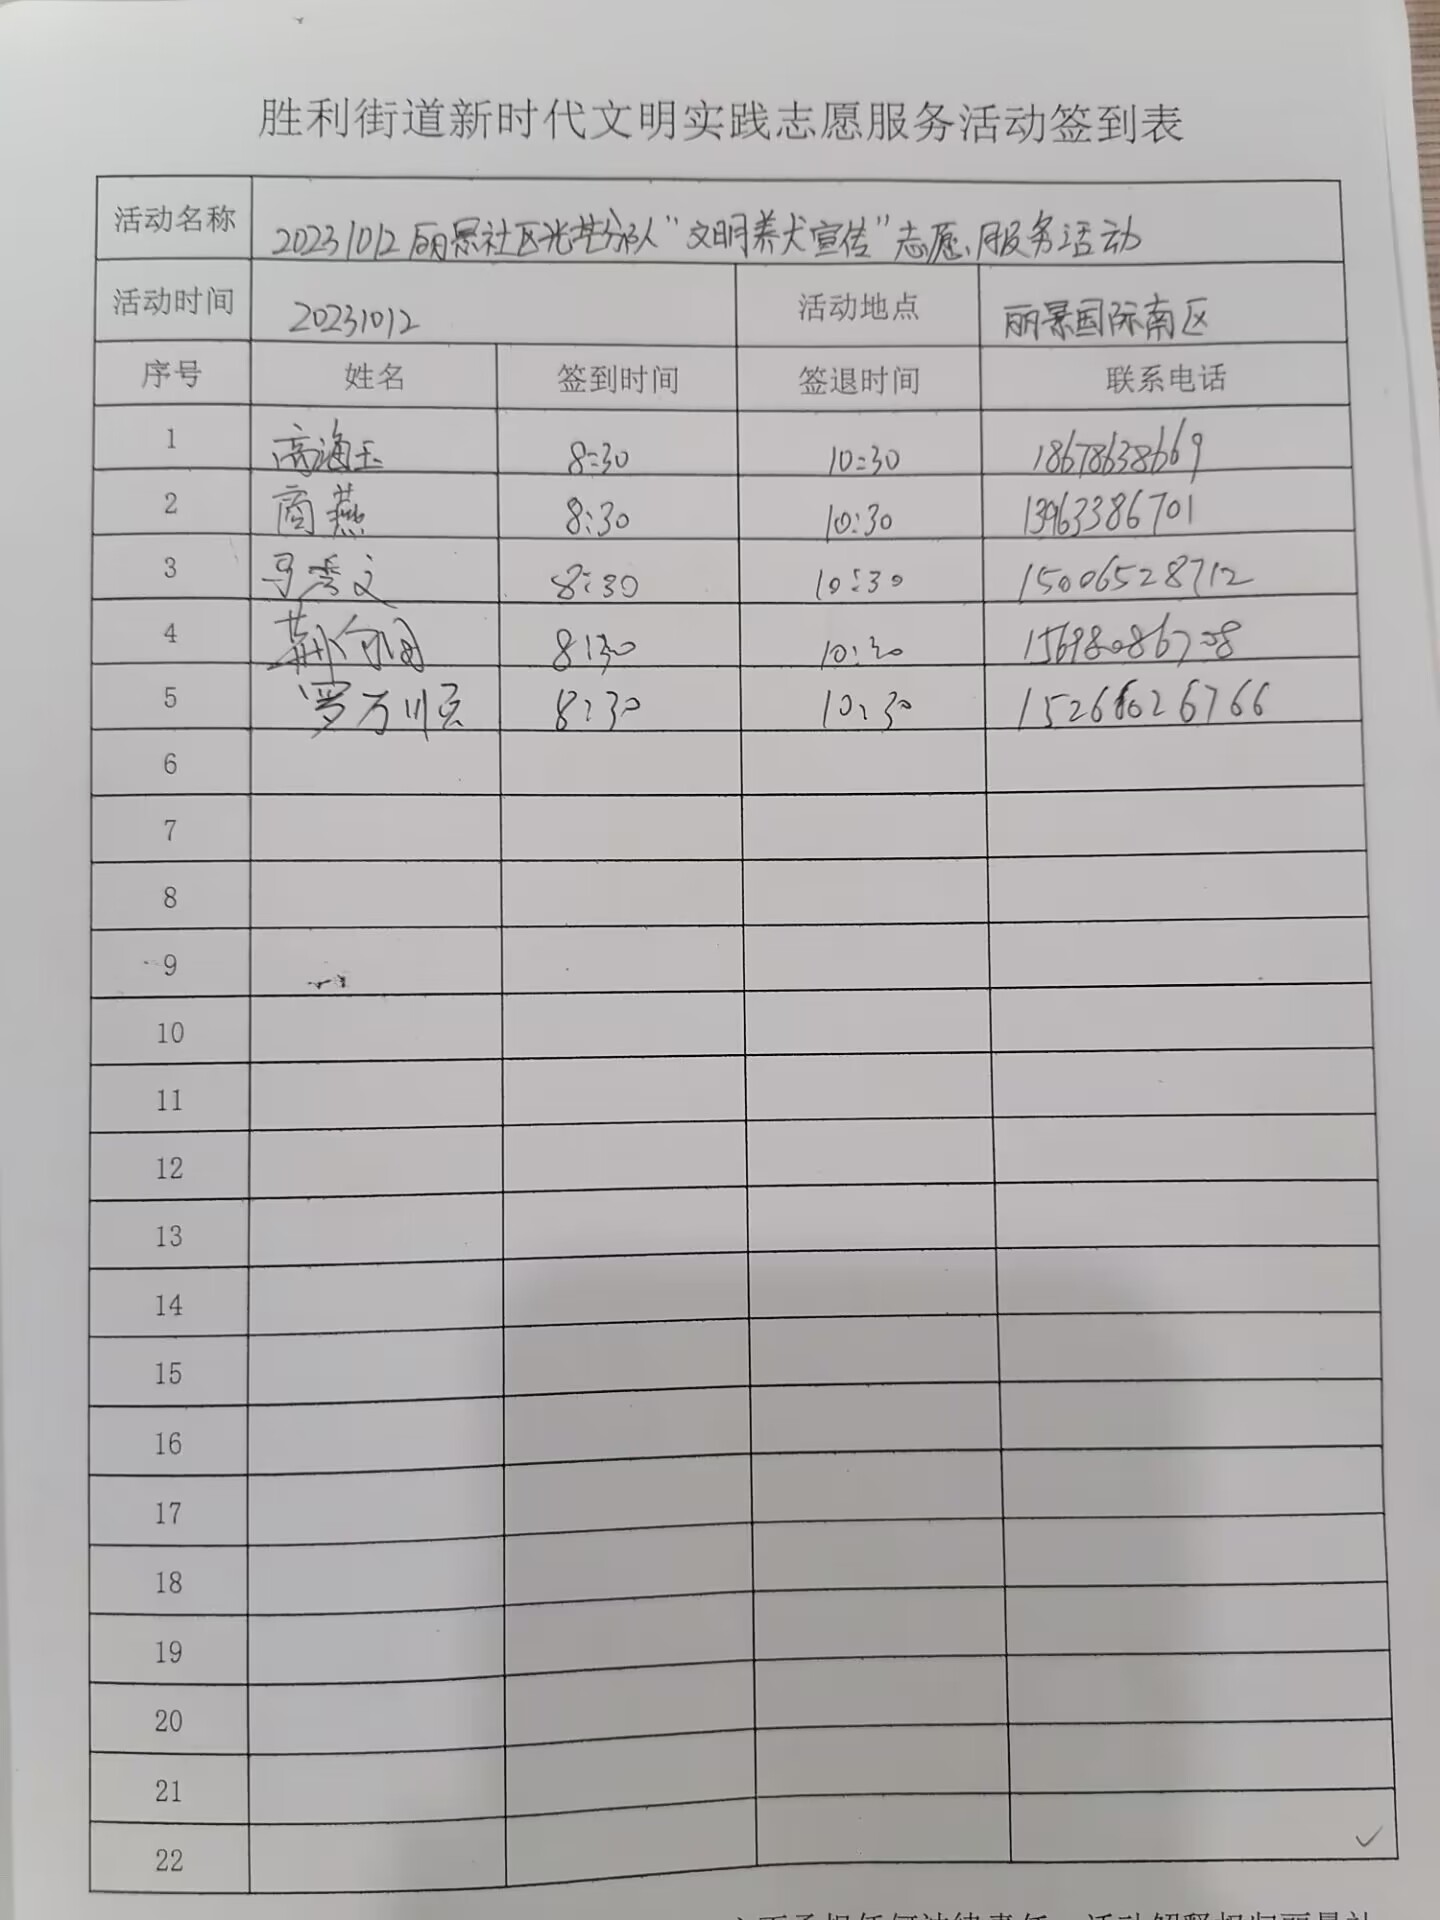 胜利街道新时代文明实践志愿服务活动签到表
活动名称 20231012丽景社区光芒分队"文明养犬宣传"志愿服务活动
活动时间 20231012 活动地点 丽景国际南区
序号 姓名 签到时间 签退时间 联系电话
1 商海玉 8:30 10:30 18678638669
2 商燕 8:30 10:30 13963386701
3 马秀文 8:30 10:30 15006528712
4 8:30 10:30 15698086708
5 罗万顺 8:30 10:30 15266626766
6
7
8
9
10
11
12
13
14
15
16
17
18
19
20
21
22